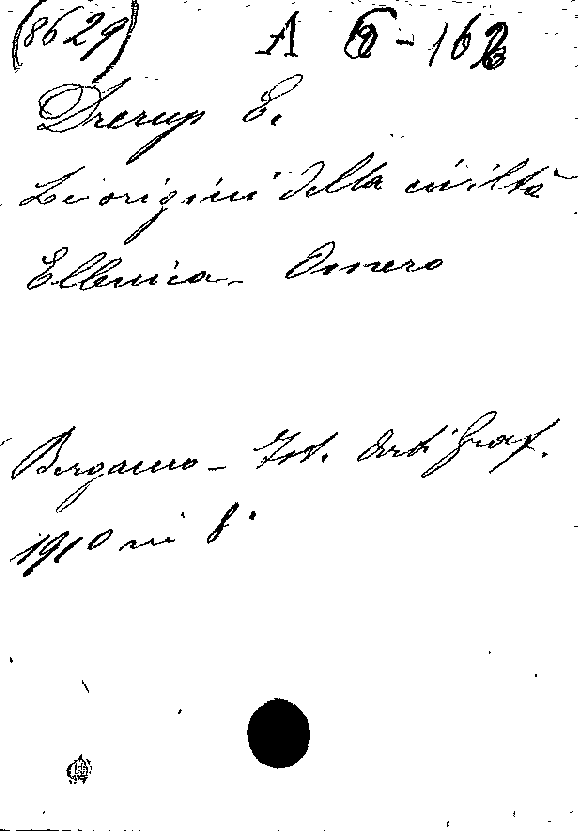 (8629) A 8-162
Drerup E.
Le origini della civiltà
Ellenica - Omero
Bergamo - Ist. Arti Graf.
1910 in 8°